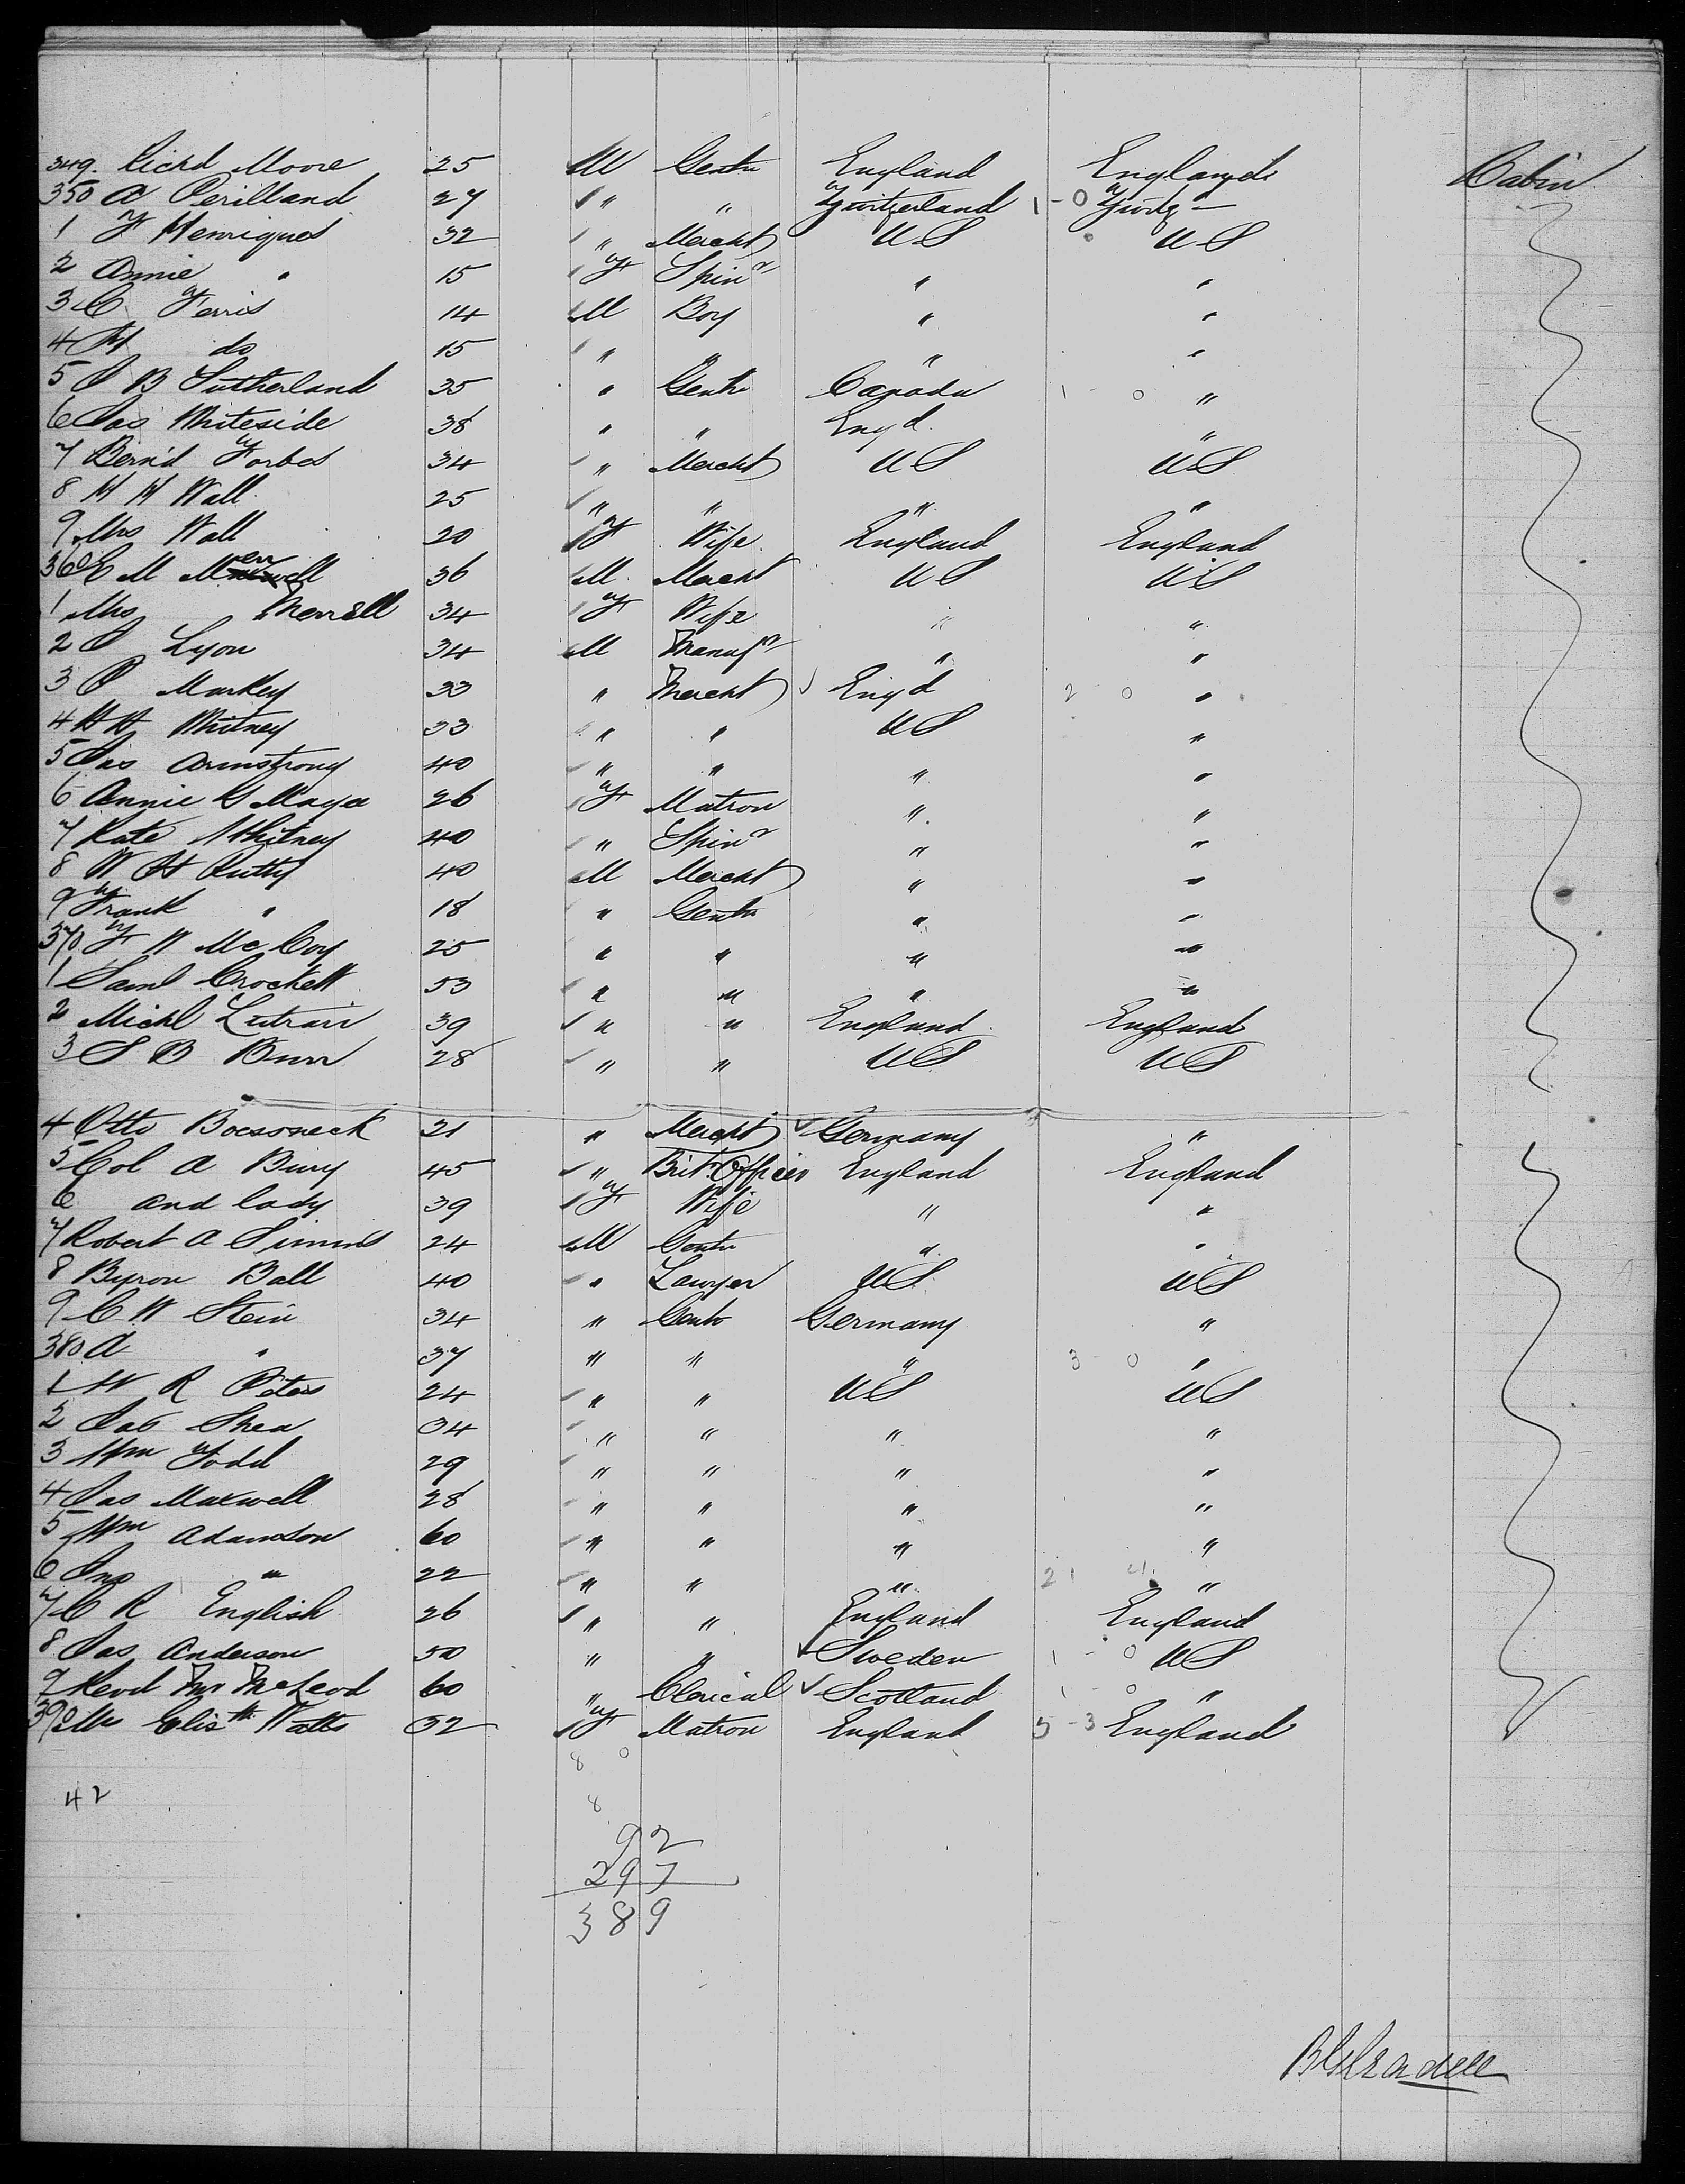 349. Richd Moore 25 M Gentn England England Cabin
350 A Perilland 27 " " Zwitzerland 1-0 Zwitz-
1 F Henriques 32 " Mercht U.S U.S
2 Annie " 15 F Spinr " "
3 C Ferris 14 M Boy " "
4 H do 15 " " " "
5 J B Sutherland 35 " Gentn Canada 1-0 "
6 Jas Whiteside 38 " " Engd. "
7 Bern'd Forbes 34 " Mercht US US
8 H H Wall 25 " " " "
9 Mrs Wall 20 F Wife England England
360 E M Merrell 36 M Mercht US US
1 Mrs Merrell 34 F Wife " "
2 J Lyon 34 M Manufr " "
3 P Markey 33 " Mercht Engd 2-0 "
4 H H Whitney 33 " " US "
5 Jas Armstrong 40 " " " "
6 Annie G Mayer 26 F Matron " "
7 Kate Whitney 40 " Spinr " "
8 W H Rutty 40 M Mercht " "
9 Frank " 18 " Gentn " "
370 F W McCoy 25 " " " "
1 Saml Crockett 53 " " " "
2 Michl 39 " " England England
3 S B Burr 28 " " US US
4 Otto Boessneck 21 " Mercht Germany "
5 Col A Bury 45 " Brit. Officer England England
6 and lady 39 F Wife " "
7 Robert A Simms 24 M Gentn " "
8 Byron Ball 40 " Lawyer US US
9 C W Stein 34 " Gentn Germany "
380 A " 37 " " " 3-0 "
1 W R Peters 24 " " US US
2 Jas Shea 34 " " " "
3 Wm Todd 29 " " " "
4 Jas Maxwell 28 " " " "
5 Wm Adamson 60 " " " "
6 Jno " 22 " " " 21 4 "
7 C R English 26 " " England England
8 Jas Anderson 50 " " Sweden 1-0 US
9 Revd Mr McLeod 60 " Clerical Scotland 1-0 "
390 Mrs Elisth Watts 32 F Matron England 5-3 England
8 0
42 8
92
297
389